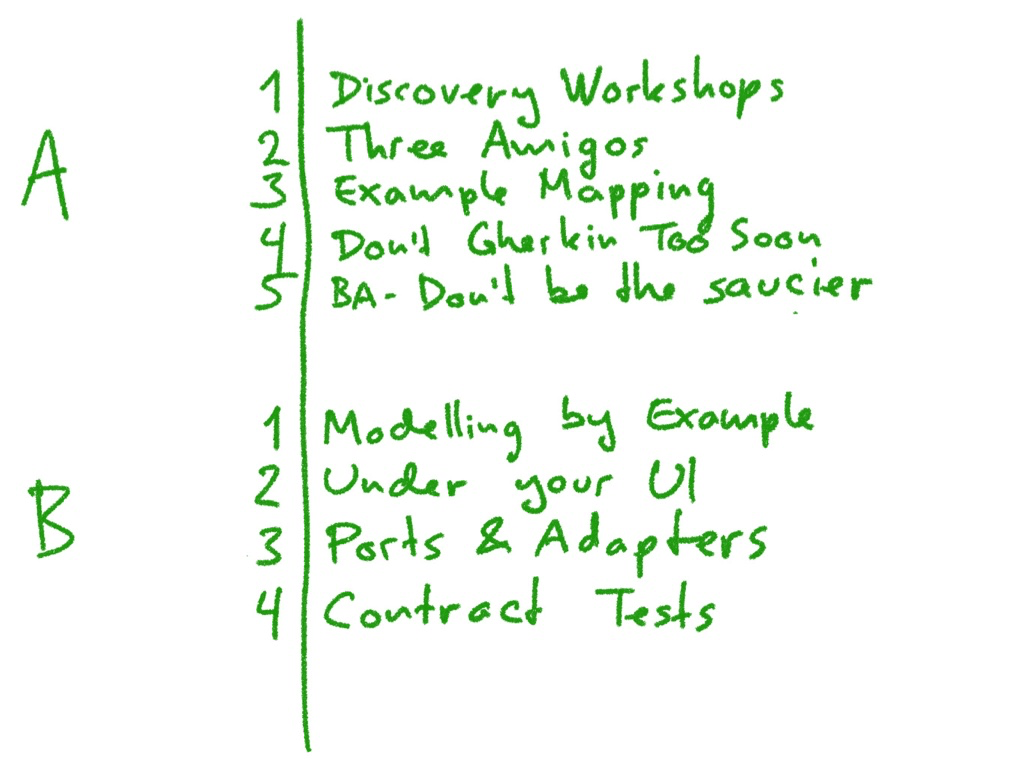 A
1 Discovery Workshops
2 Three Amigos
3 Example Mapping
4 Don't Gherkin Too Soon
5 BA - Don't be the saucier
B
1 Modelling by Example
2 Under your UI
3 Ports & Adapters
4 Contract Tests